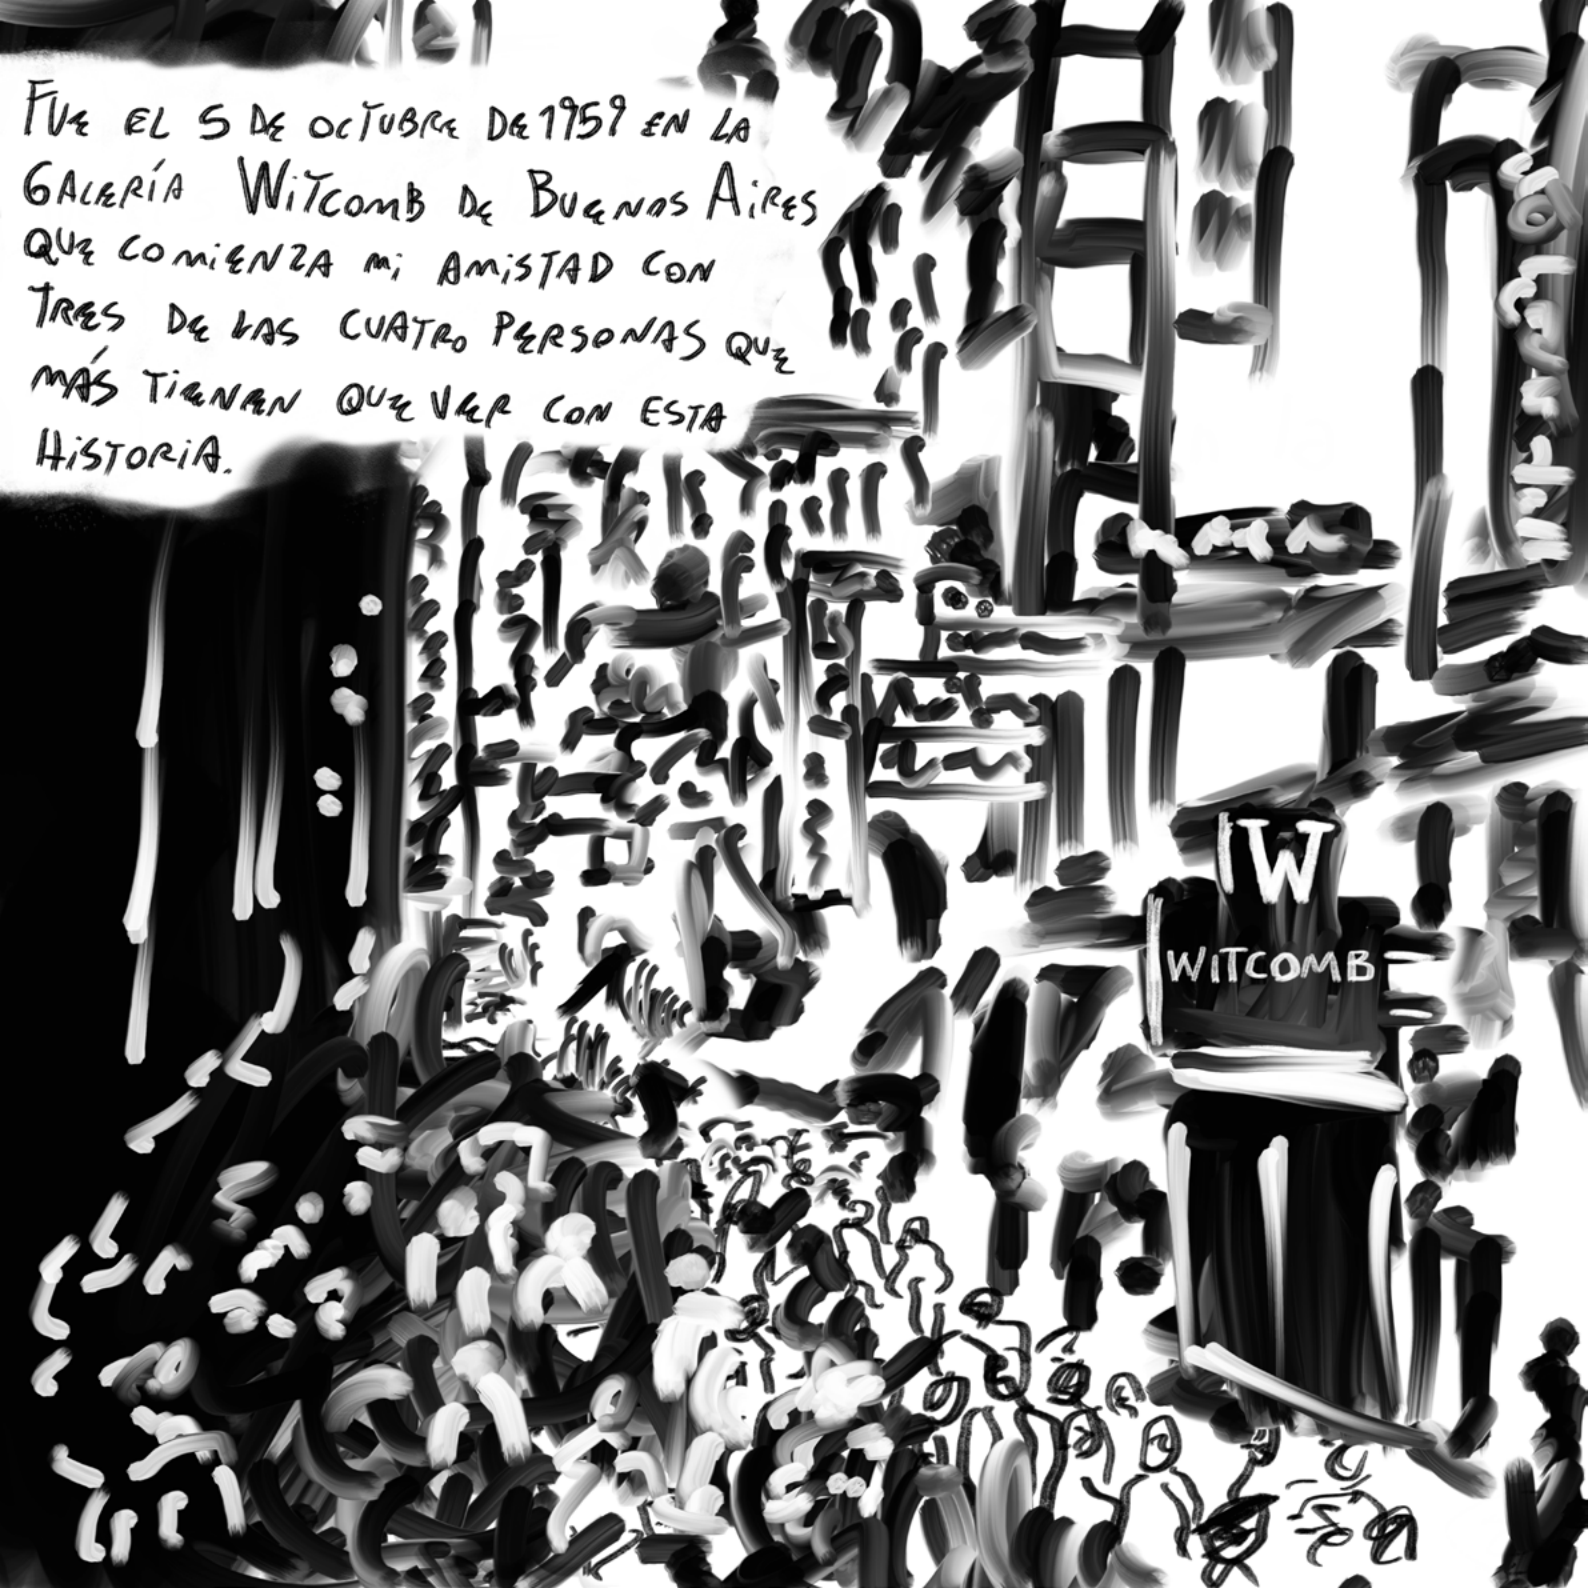 FUE EL 5 DE OCTUBRE DE 1959 EN LA
GALERÍA WITCOMB DE BUENOS AIRES
QUE COMIENZA MI AMISTAD CON
TRES DE LAS CUATRO PERSONAS QUE
MÁS TIENEN QUE VER CON ESTA
HISTORIA.
W
WITCOMB